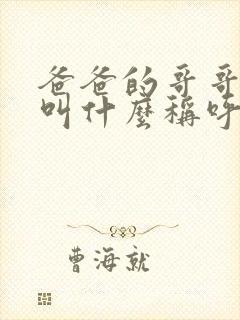 爸爸的哥哥
叫什麼稱呼
曹海就